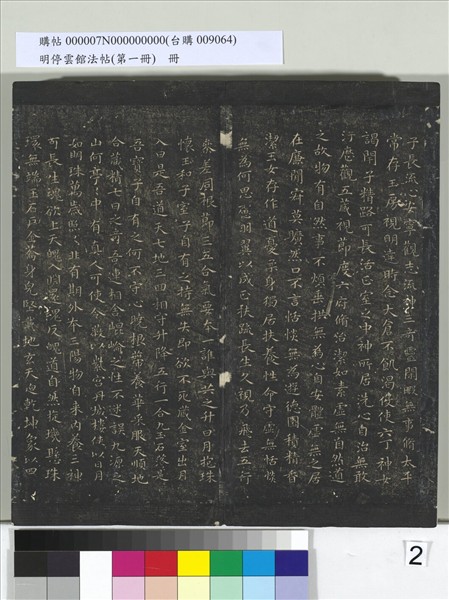 購帖 000007N000000000(台購 009064)
明停雲館法帖(第一冊) 冊
子長流心安寧觀志流神三奇靈閒暇無事脩太平
常存玉房視明達時念大倉不飢渴役使六丁神女
謁閉子精路可長活正室之中神所居洗心自治無敢
汙歷觀五藏視節度六府脩治潔如素虛無自然道
之故物有自然事不煩垂拱無為心自安體虛無之居
在廉間寂莫曠然口不言恬惔無為遊德園積精香
潔玉女存作道憂柔身獨居扶養性命守虛無恬惔
無為何思慮羽翼以成正扶疏長生久視乃飛去五行
參差同根節三五合氣要本一誰與共之升日月抱珠
懷玉和子室子自有之持無失即欲不死藏金室出月
入日是吾道天七地三回相守升降五行一合九玉石落落是
吾寶子自有之何不守心曉根蔕養華采服天順地
合藏精七日之奇吾連相合崐崘之性不迷誤九源之
山何亭亭中有真人可使令蔽以紫宮丹城樓俠以日月
如明珠萬歲照照非有期外本三陽物自來內養三神
可長生魂欲上天魄入淵還魂反魄道自然旋璣懸珠
環無端玉石戶金籥身兒堅載地玄天迫乾坤象以四
2